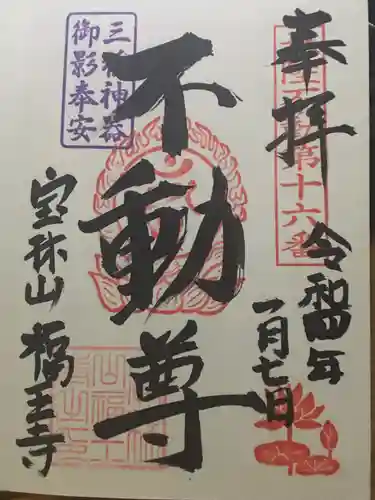 奉拝
第十六番
令和四年
一月七日
不動尊
三種神器
御影奉安
宝珠山
福王寺